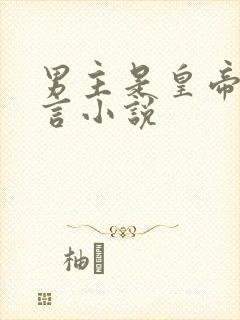 男主是皇帝
言小説
柚